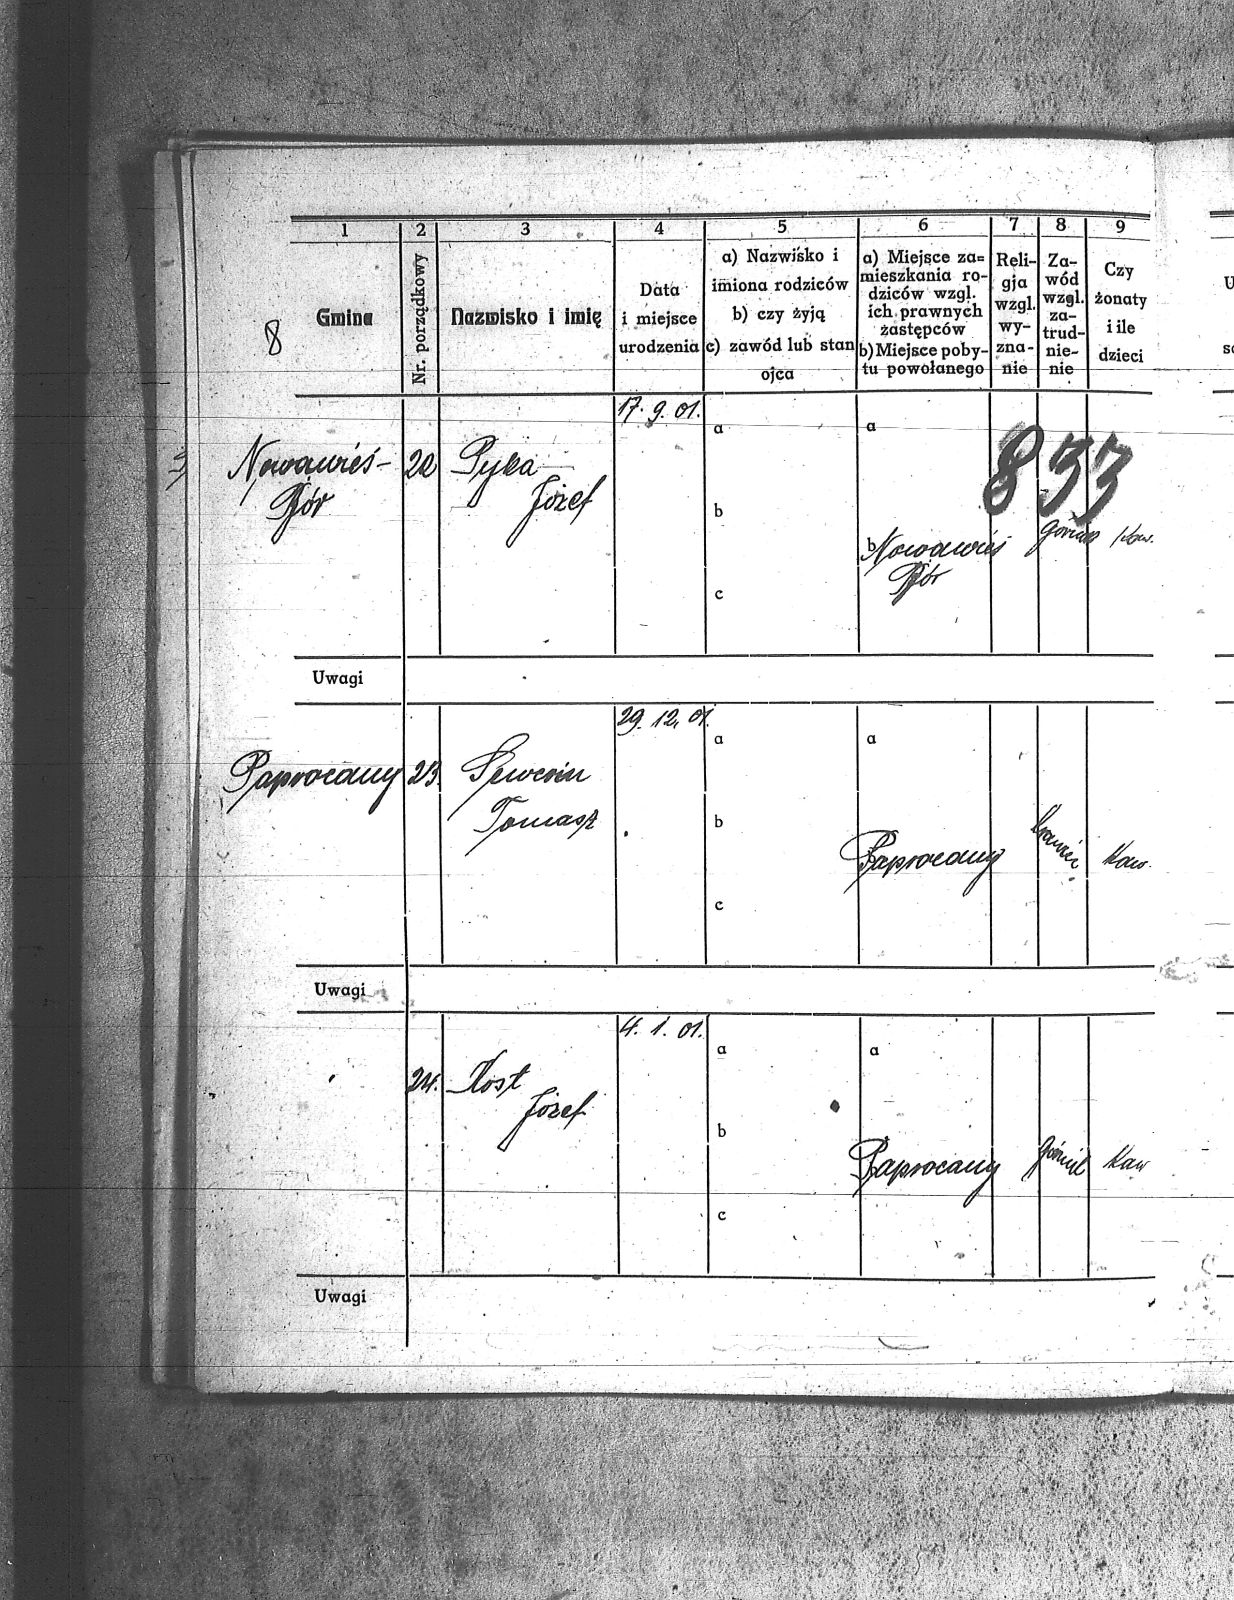 1 2 3 4 5 6 7 8 9
8
Gmina
Nr. porządkowy
Nazwisko i imię
Data
i miejsce
urodzenia
a) Nazwisko i
imiona rodziców
b) czy żyją
c) zawód lub stan
ojca
a) Miejsce za=
mieszkania ro-
dziców wzgl.
ich prawnych
zastępców
b) Miejsce poby-
tu powołanego
Reli-
gja
wzgl.
wy-
zna-
nie
Za-
wód
wzgl.
za-
trud-
nie-
nie
Czy
żonaty
i ile
dzieci
17. 9. 01.
a a
833
Nowawieś- 22 Pyka
Józef
b
b Nowawieś Kaw.
c
Uwagi
29. 12. 01.
a a
Paprocany 23. Sewerin
Tomasz
b
Paprocany Kaw.
c
Uwagi
4. 1. 01.
a a
24. Kost
Józef
b
Paprocany górnik Kaw
c
Uwagi